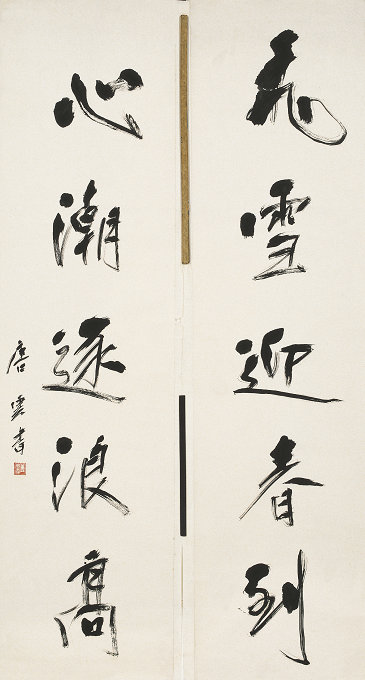 飛雪迎春到
心潮逐浪高
唐雲書